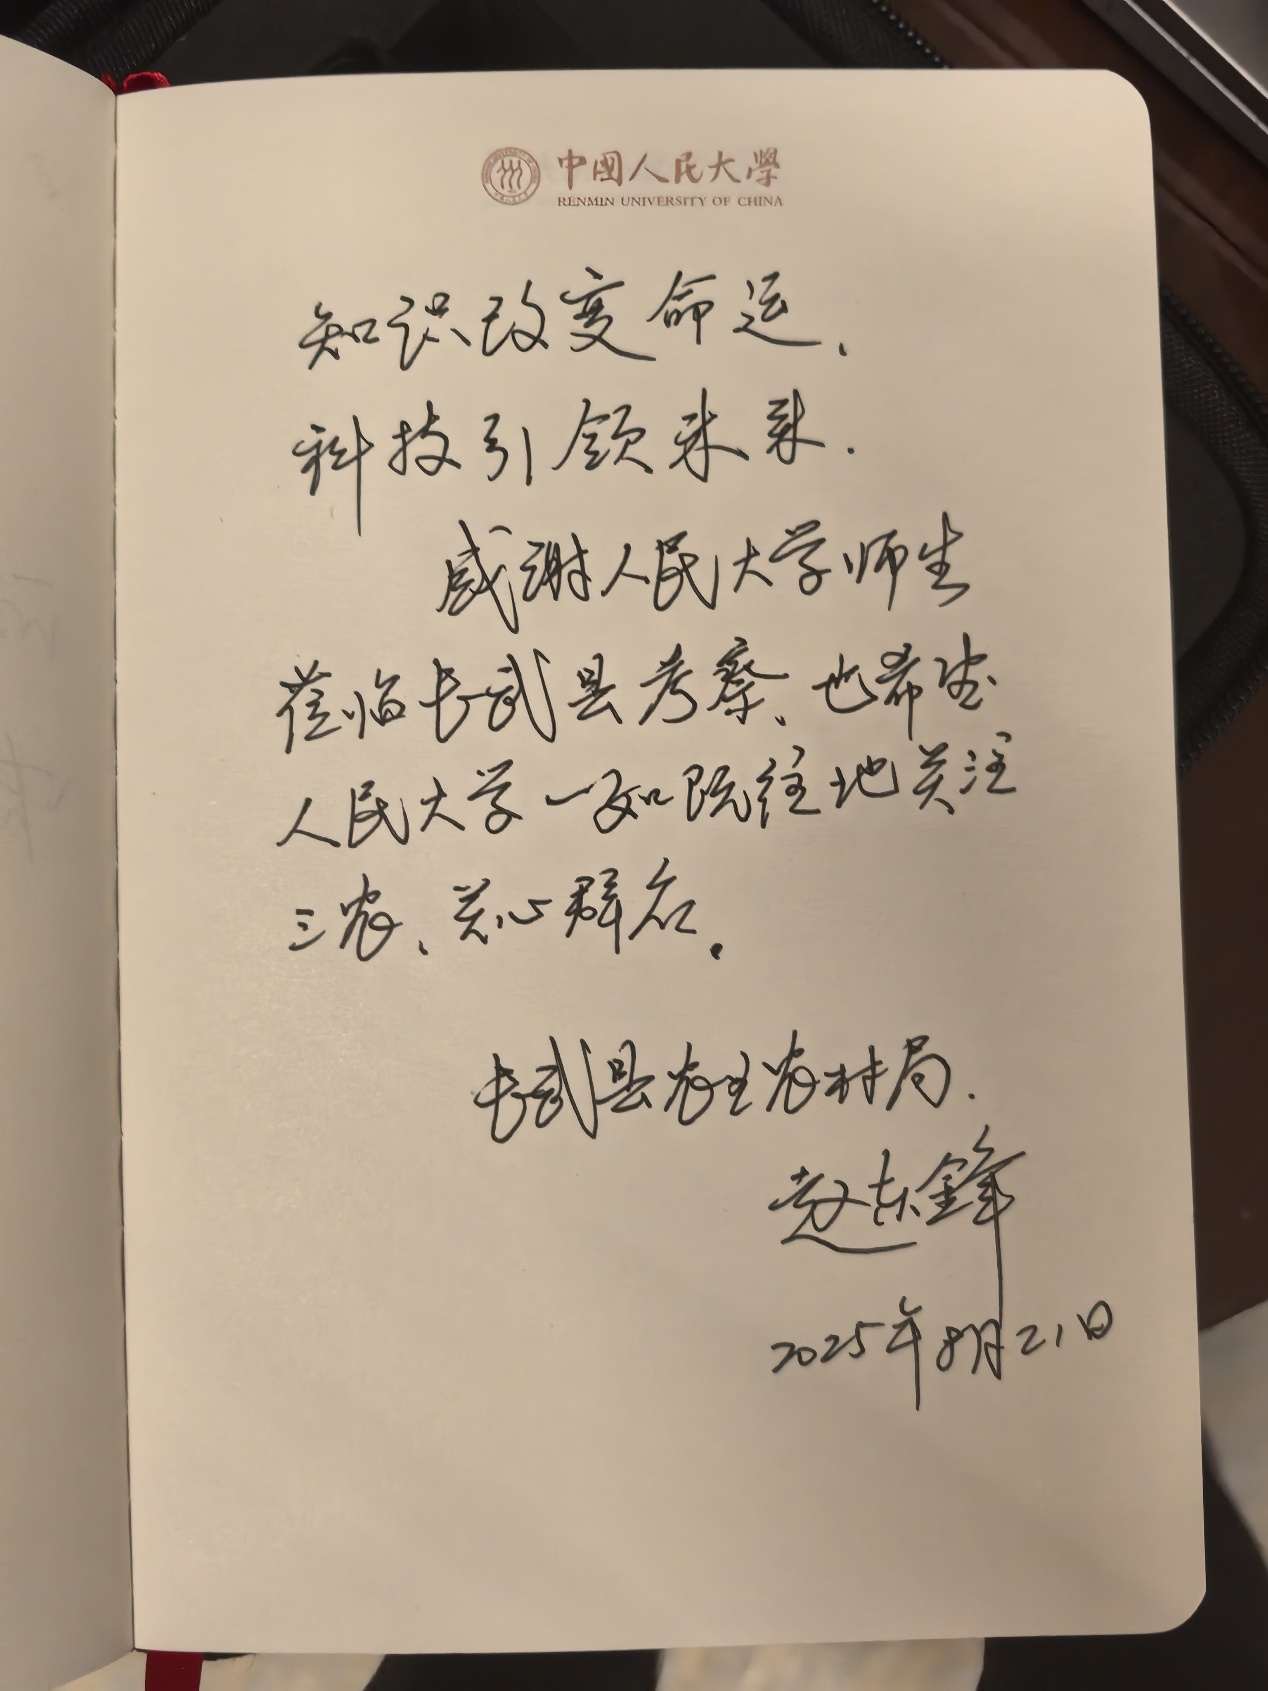 中國人民大學
RENMIN UNIVERSITY OF CHINA
知识改变命运、
科技引领未来.
感谢人民大学师生
莅临长武县考察、也希望
人民大学一如既往地关注
三农、关心群众.
长武县农业农村局.
赵东锋
2025年8月21日